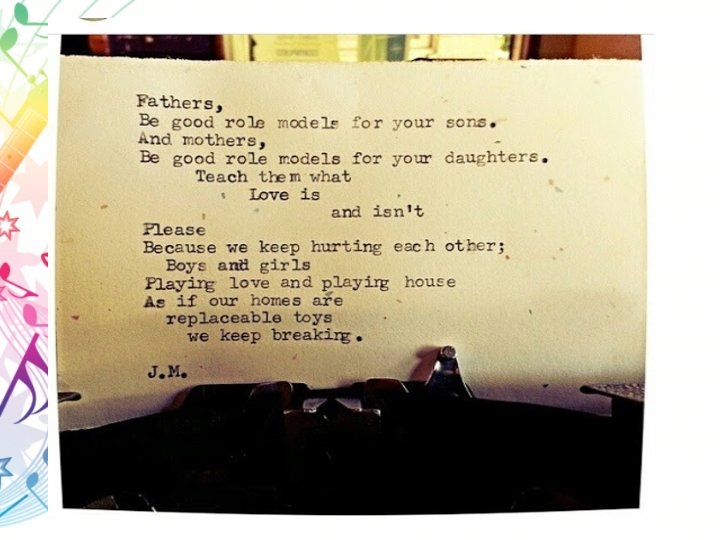 Fathers,
Be good role models for your sons.
And mothers,
Be good role models for your daughters.
Teach them what
Love is
and isn't
Please
Because we keep hurting each other;
Boys and girls
Playing love and playing house
As if our homes are
replaceable toys
we keep breaking.
J.M.